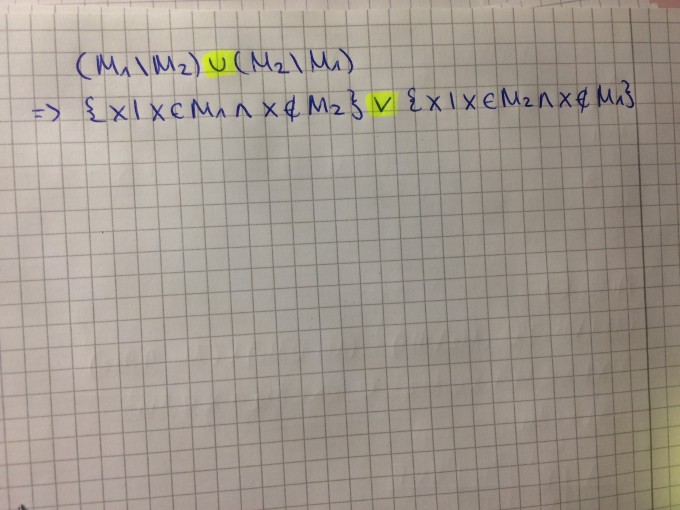 (M₁\M₂) ∪ (M₂\M₁)
=> {x|x∈M₁∧x∉M₂} ∨ {x|x∈M₂∧x∉M₁}